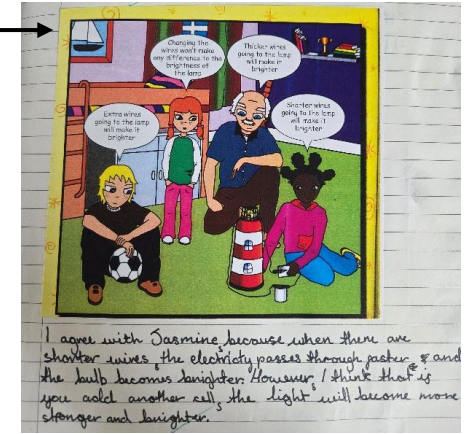 Changing the
wires won't make
any difference to the
brightness of
the lamp
Thicker wires
going to the lamp
will make it
brighter
Extra wires
going to the lamp
will make it
brighter
Shorter wires
going to the lamp
will make it
brighter
I agree with Jasmine, because when there are
shorter wires, the electricty passes through faster, & and
the bulb becomes brighter. However, I think that if
you add another cell, the light will become more
stronger and brighter.